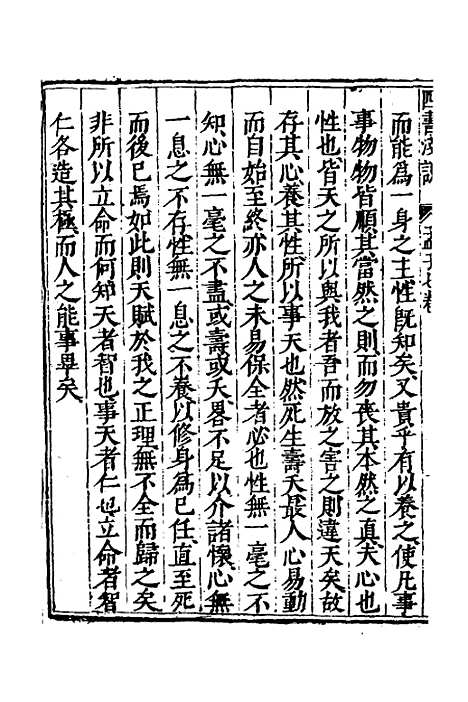 四書淺說 孟子七卷
而能為一身之主性旣知矣又貴乎有以養之使凡事
事物物皆順其當然之則而勿喪其本然之真夫心也
性也皆天之所以與我者吾而放之害之則違天矣故
存其心養其性所以事天也然死生壽夭最人心易動
而自始至終亦人之未易保全者必也性無一毫之不
知心無一毫之不盡或壽或夭畧不足以介諸懷心無
一息之不存性無一息之不養以修身為已任直至死
而後已焉如此則天賦於我之正理無不全而歸之矣
非所以立命而何知天者智也事天者仁也立命者智
仁各造其極而人之能事畢矣